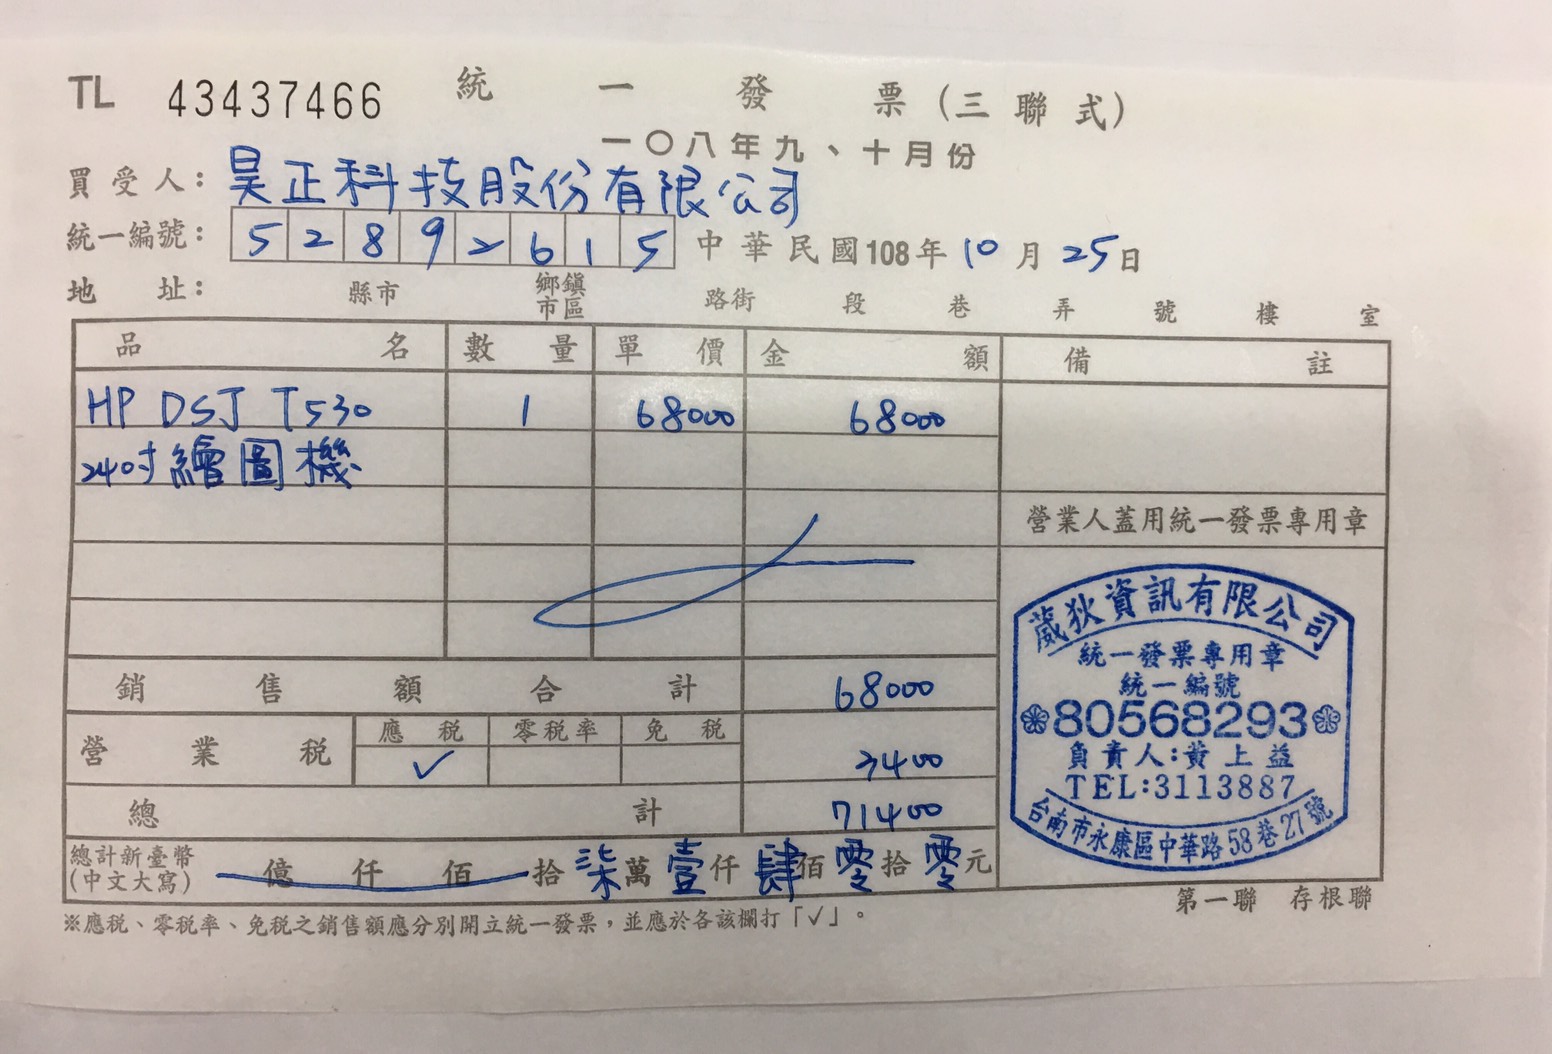 TL 43437466 統一發票(三聯式)
一〇八年九、十月份
買受人：昊正科技股份有限公司
統一編號：52892615 中華民國108年10月25日
地址： 縣市 鄉鎮市區 路街 段 巷 弄 號 樓 室
品名 數量 單價 金額 備註
HP DSJ T530 1 68000 68000
24吋繪圖機
營業人蓋用統一發票專用章
葳狄資訊有限公司
統一發票專用章
統一編號
80568293
負責人:黃上益
TEL:3113887
台南市永康區中華路58巷27號
銷售額合計 68000
營業稅 應稅 零稅率 免稅
✓ 3400
總計 71400
總計新臺幣(中文大寫) 億 仟 佰 拾 柒萬壹仟肆佰零拾零元
第一聯 存根聯
※應稅、零稅率、免稅之銷售額應分別開立統一發票，並應於各該欄打「✓」。